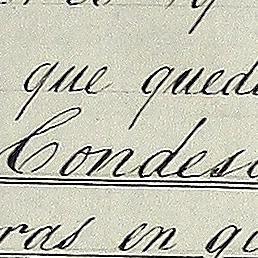 que qued
Condes
ras en g